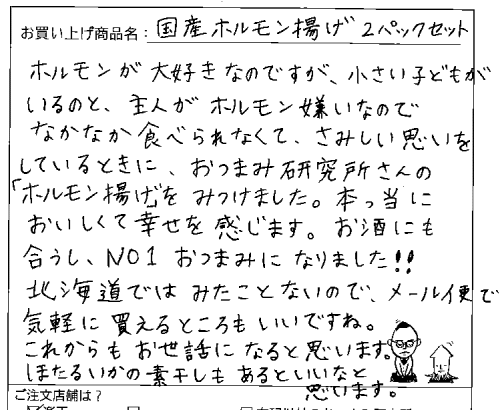 お買い上げ商品名：国産ホルモン揚げ 2パックセット
ホルモンが大好きなのですが、小さい子どもが
いるのと、主人がホルモン嫌いなので
なかなか食べられなくて、さみしい思いを
しているときに、おつまみ研究所さんの
「ホルモン揚げ」をみつけました。本っ当に
おいしくて幸せを感じます。お酒にも
合うし、NO1 おつまみになりました!!
北海道ではみたことないので、メール便で
気軽に買えるところもいいですね。
これからもお世話になると思います。
ほたるいかの素干しもあるといいなと
思います。
ご注文店舗は？